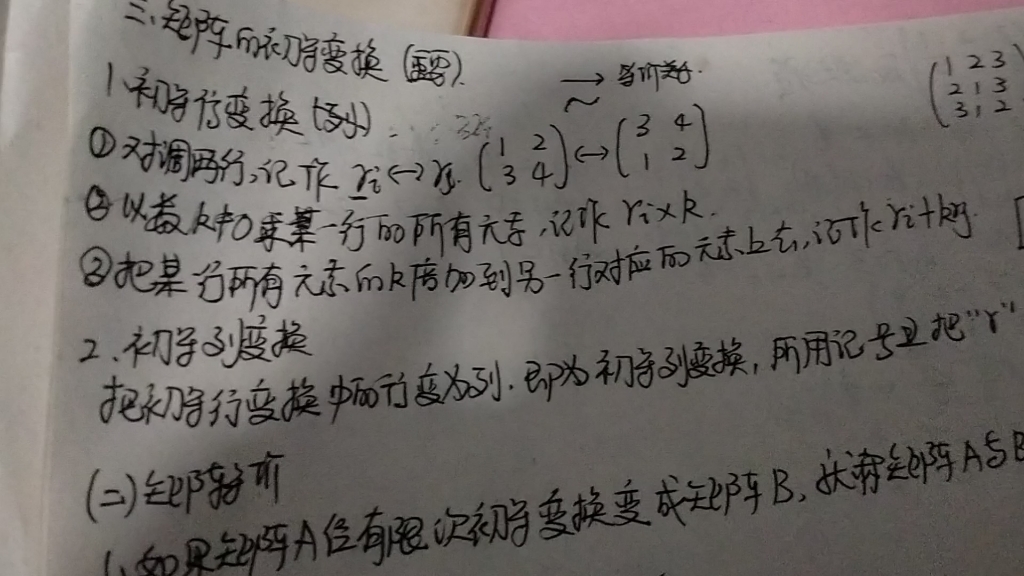 三、矩阵的初等变换(重要).
→ 等价关系.
~
1、初等行变换(列)
(1 2 3
2 1 3
3, 2
①对调两行,记作 ri↔rj. (1 2
3 4)↔(3 4
1 2)
②以数k≠0乘某一行的所有元素,记作 ri×k.
③把某一行所有元素的k倍加到另一行对应的元素上去,记作ri+krj
2、初等列变换
把初等行变换中的行变为列.即为初等列变换,所用记号是把"r"
(二)矩阵等价
1、如果矩阵A经有限次初等变换变成矩阵B,就称矩阵A与B